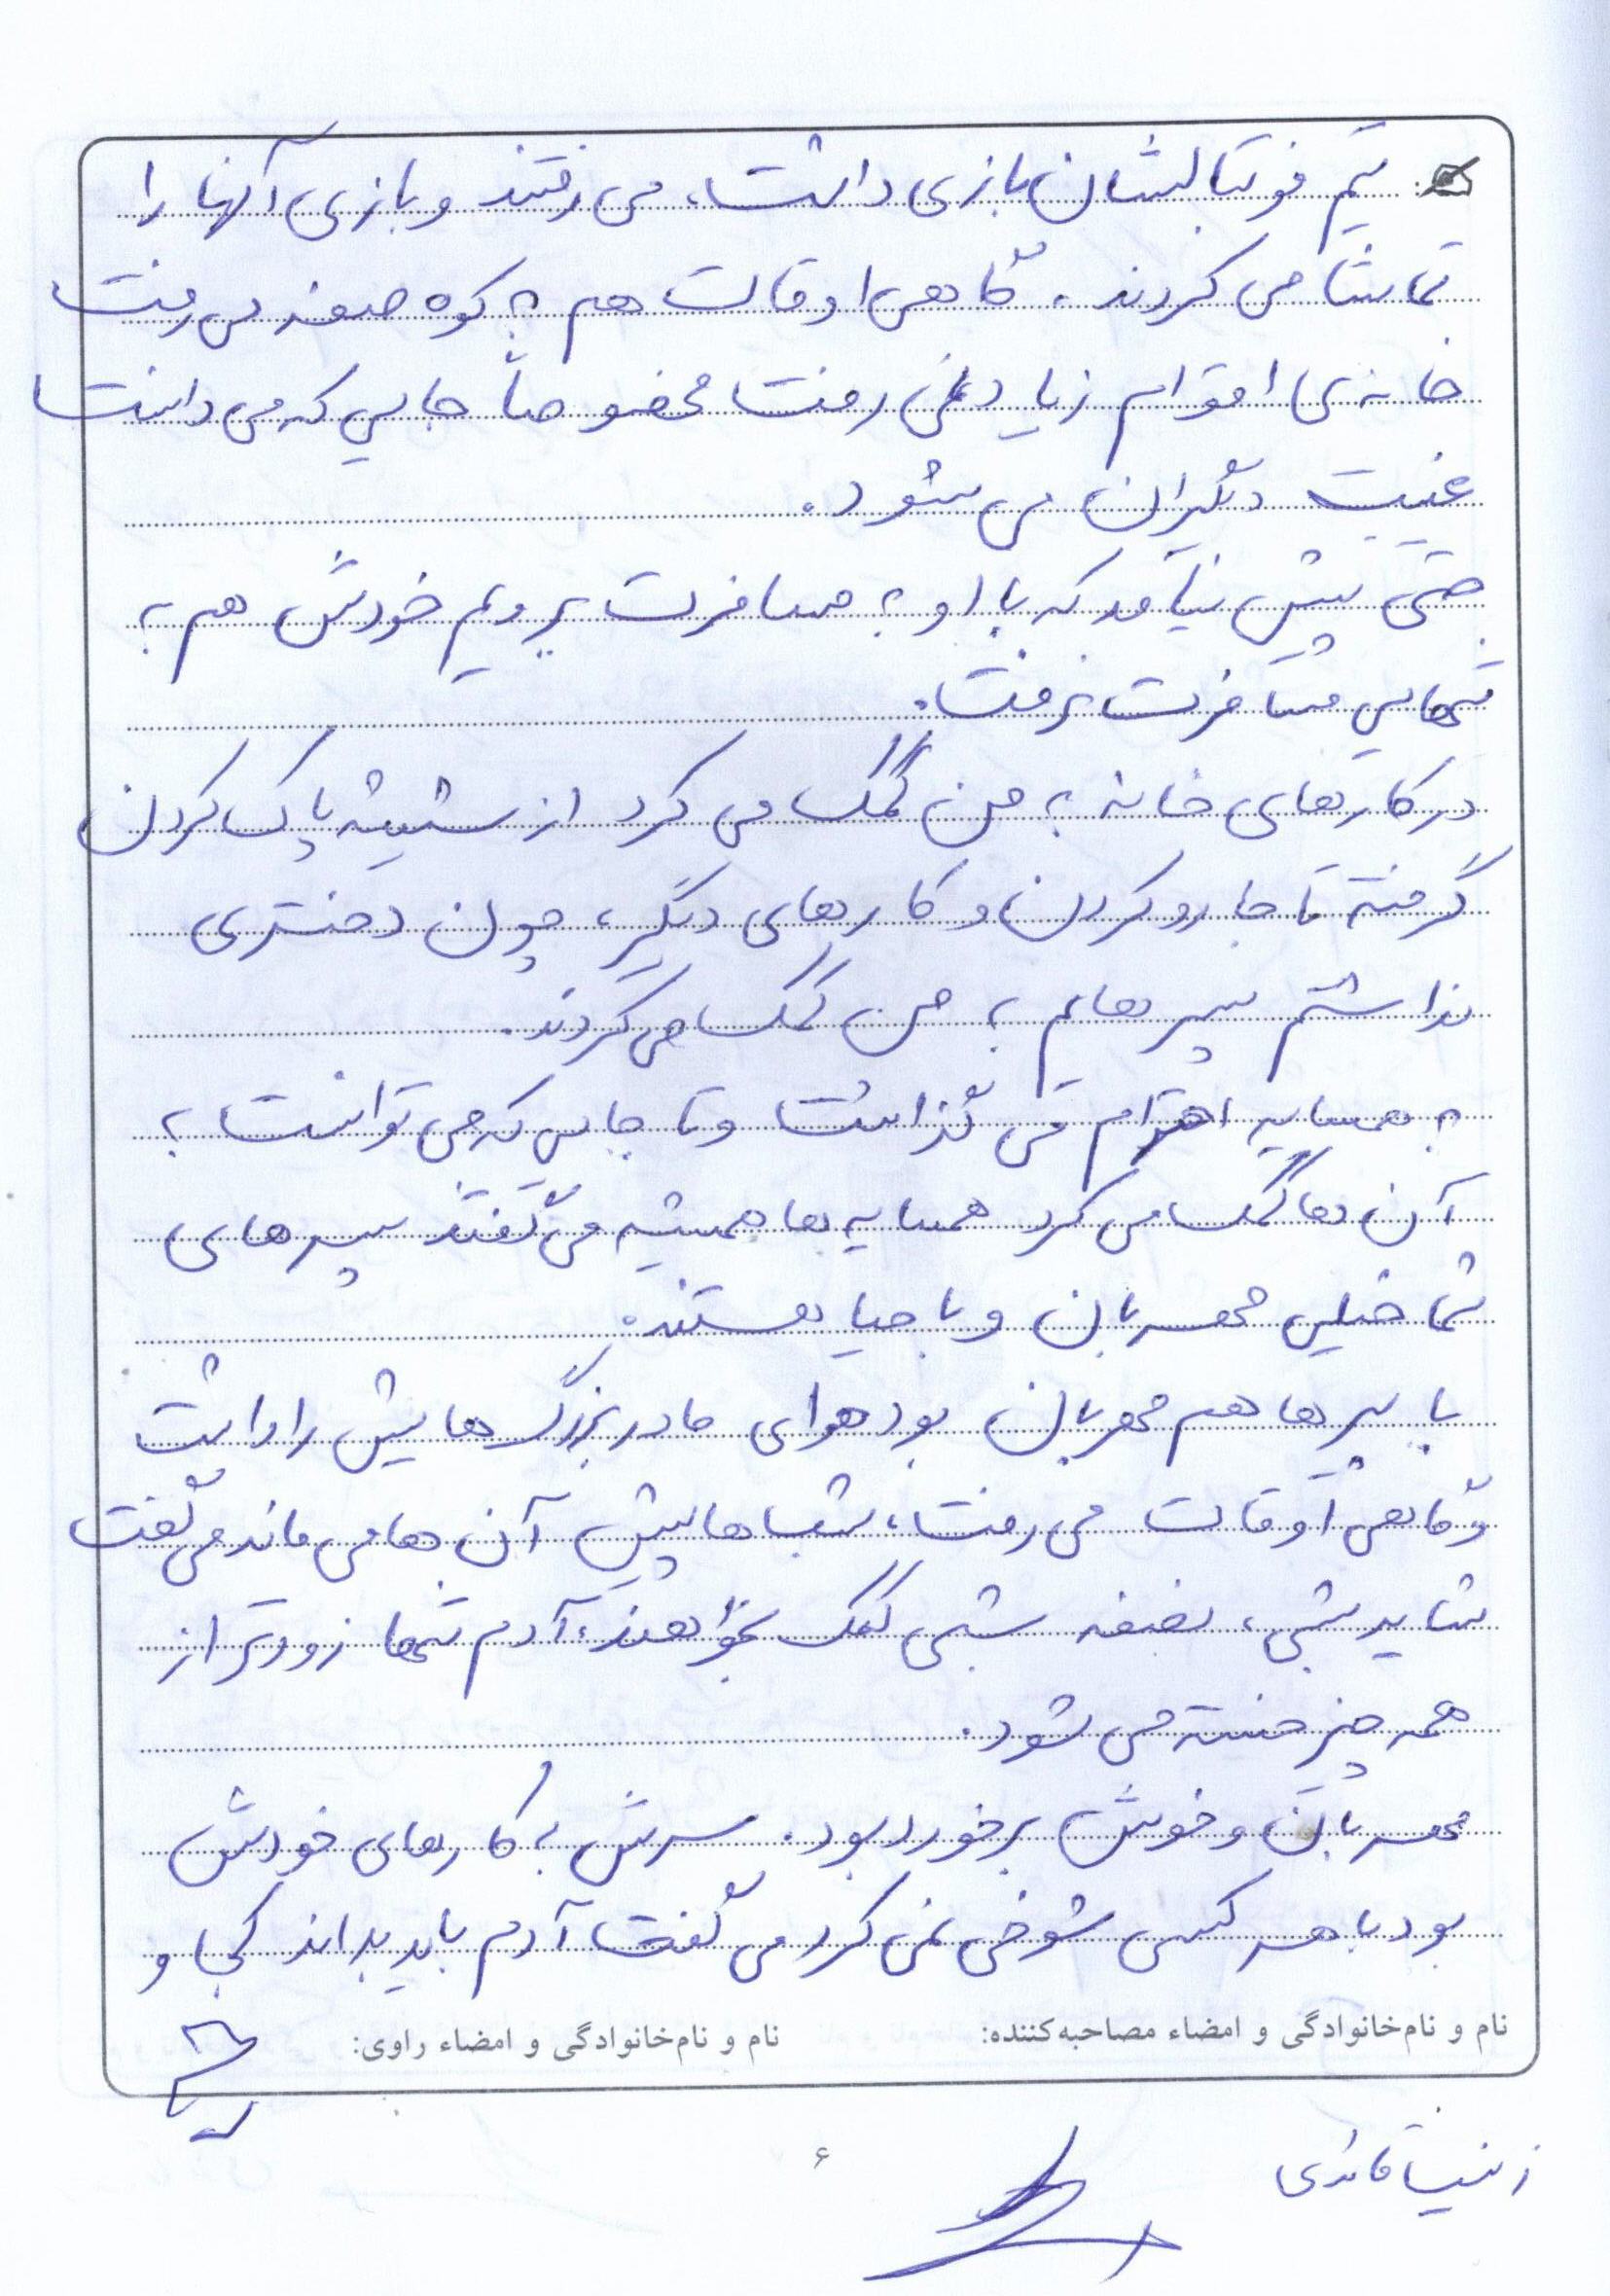 تیم فوتبالشان بازی داشت، می رفتند و بازی آنها را
تماشا می کردند. گاهی اوقات هم به کوه صفه می رفت
خانه ی اقوام زیاد نمی رفت مخصوصاً جایی که می دانست
غیبت دیگران می شود.
حتی پیش نیامد که با او به مسافرت برویم خودش هم به
تنهایی مسافرت نرفت.
در کارهای خانه به من کمک می کرد از شیشه پاک کردن
گرفته تا جارو کردن و کارهای دیگر، چون دختری
نداشتم پسرهایم به من کمک می کردند.
به همسایه احترام می گذاشت و تا جایی که می توانست به
آن ها کمک می کرد همسایه ها همیشه می گفتند پسرهای
شما خیلی مهربان و با حیا هستند.
با پیرها هم مهربان بود هوای مادربزرگ هایش را داشت
و گاهی اوقات می رفت، شب ها پیش آن ها می ماند می گفت
شاید شبی، نصفه شبی کمک بخواهند، آدم تنها زودتر از
همه چیز خسته می شود.
مهربان و خوش برخورد بود. سرش به کارهای خودش
بود با هر کسی شوخی نمی کرد می گفت آدم باید بداند کجا و
نام و نام‌خانوادگی و امضاء مصاحبه‌کننده: نام و نام‌خانوادگی و امضاء راوی:
۶